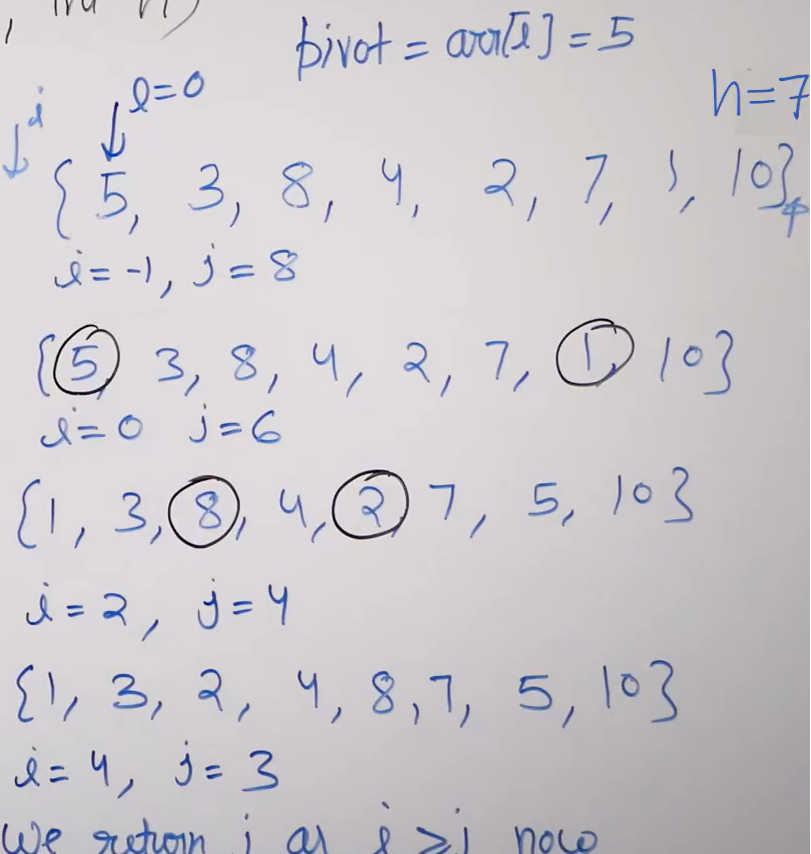 pivot = arr[l] = 5
i
l=0
h=7
{ 5, 3, 8, 4, 2, 7, 1, 10}
i=-1, j=8
{5, 3, 8, 4, 2, 7, 1, 10}
i=0 j=6
{1, 3, 8, 4, 2, 7, 5, 10}
i=2, j=4
{1, 3, 2, 4, 8, 7, 5, 10}
i=4, j=3
We return j as i≥j now